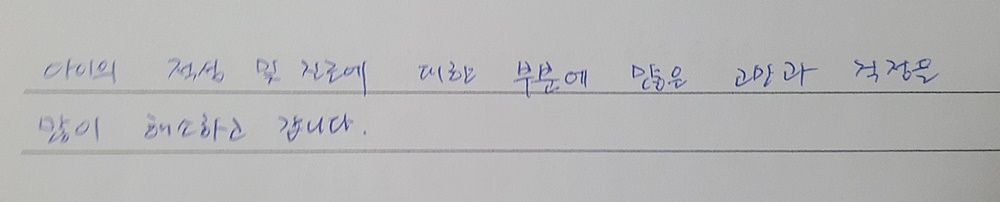 아이의 적성 및 진로에 대한 부분에 많은 고민과 걱정을
많이 해소하고 갑니다.